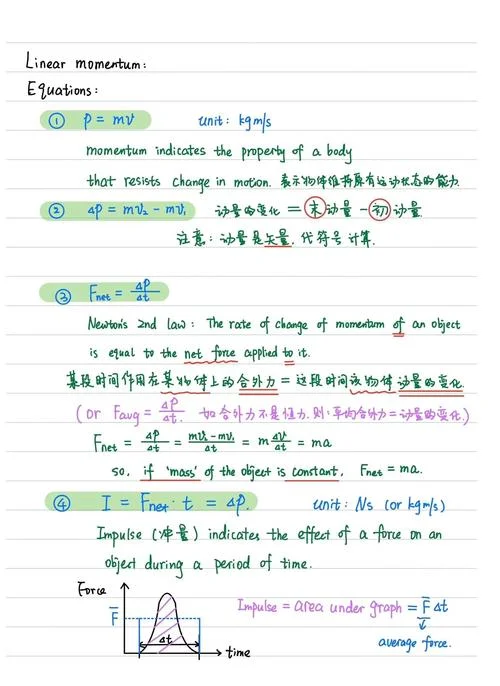 Linear momentum:
Equations:
① P = mv unit: kgm/s
momentum indicates the property of a body
that resists change in motion. 表示物体维持原有运动状态的能力.
② ΔP = mv₂ - mv₁ 动量的变化 = 末动量 - 初动量.
注意: 动量是矢量, 代符号计算.
③ Fnet = ΔP/Δt
Newton's 2nd law: The rate of change of momentum of an object
is equal to the net force applied to it.
某段时间作用在某物体上的合外力 = 这段时间该物体动量的变化.
(or Favg = ΔP/Δt. 如合外力不是恒力, 则: 平均合外力 = 动量的变化)
Fnet = ΔP/Δt = mv₂ - mv₁/Δt = m Δv/Δt = ma
so, if 'mass' of the object is constant, Fnet = ma.
④ I = Fnet · t = ΔP. unit: Ns (or kgm/s)
Impulse (冲量) indicates the effect of a force on an
object during a period of time.
Force
F̄
Δt
time
Impulse = area under graph = F̄ Δt
average force.